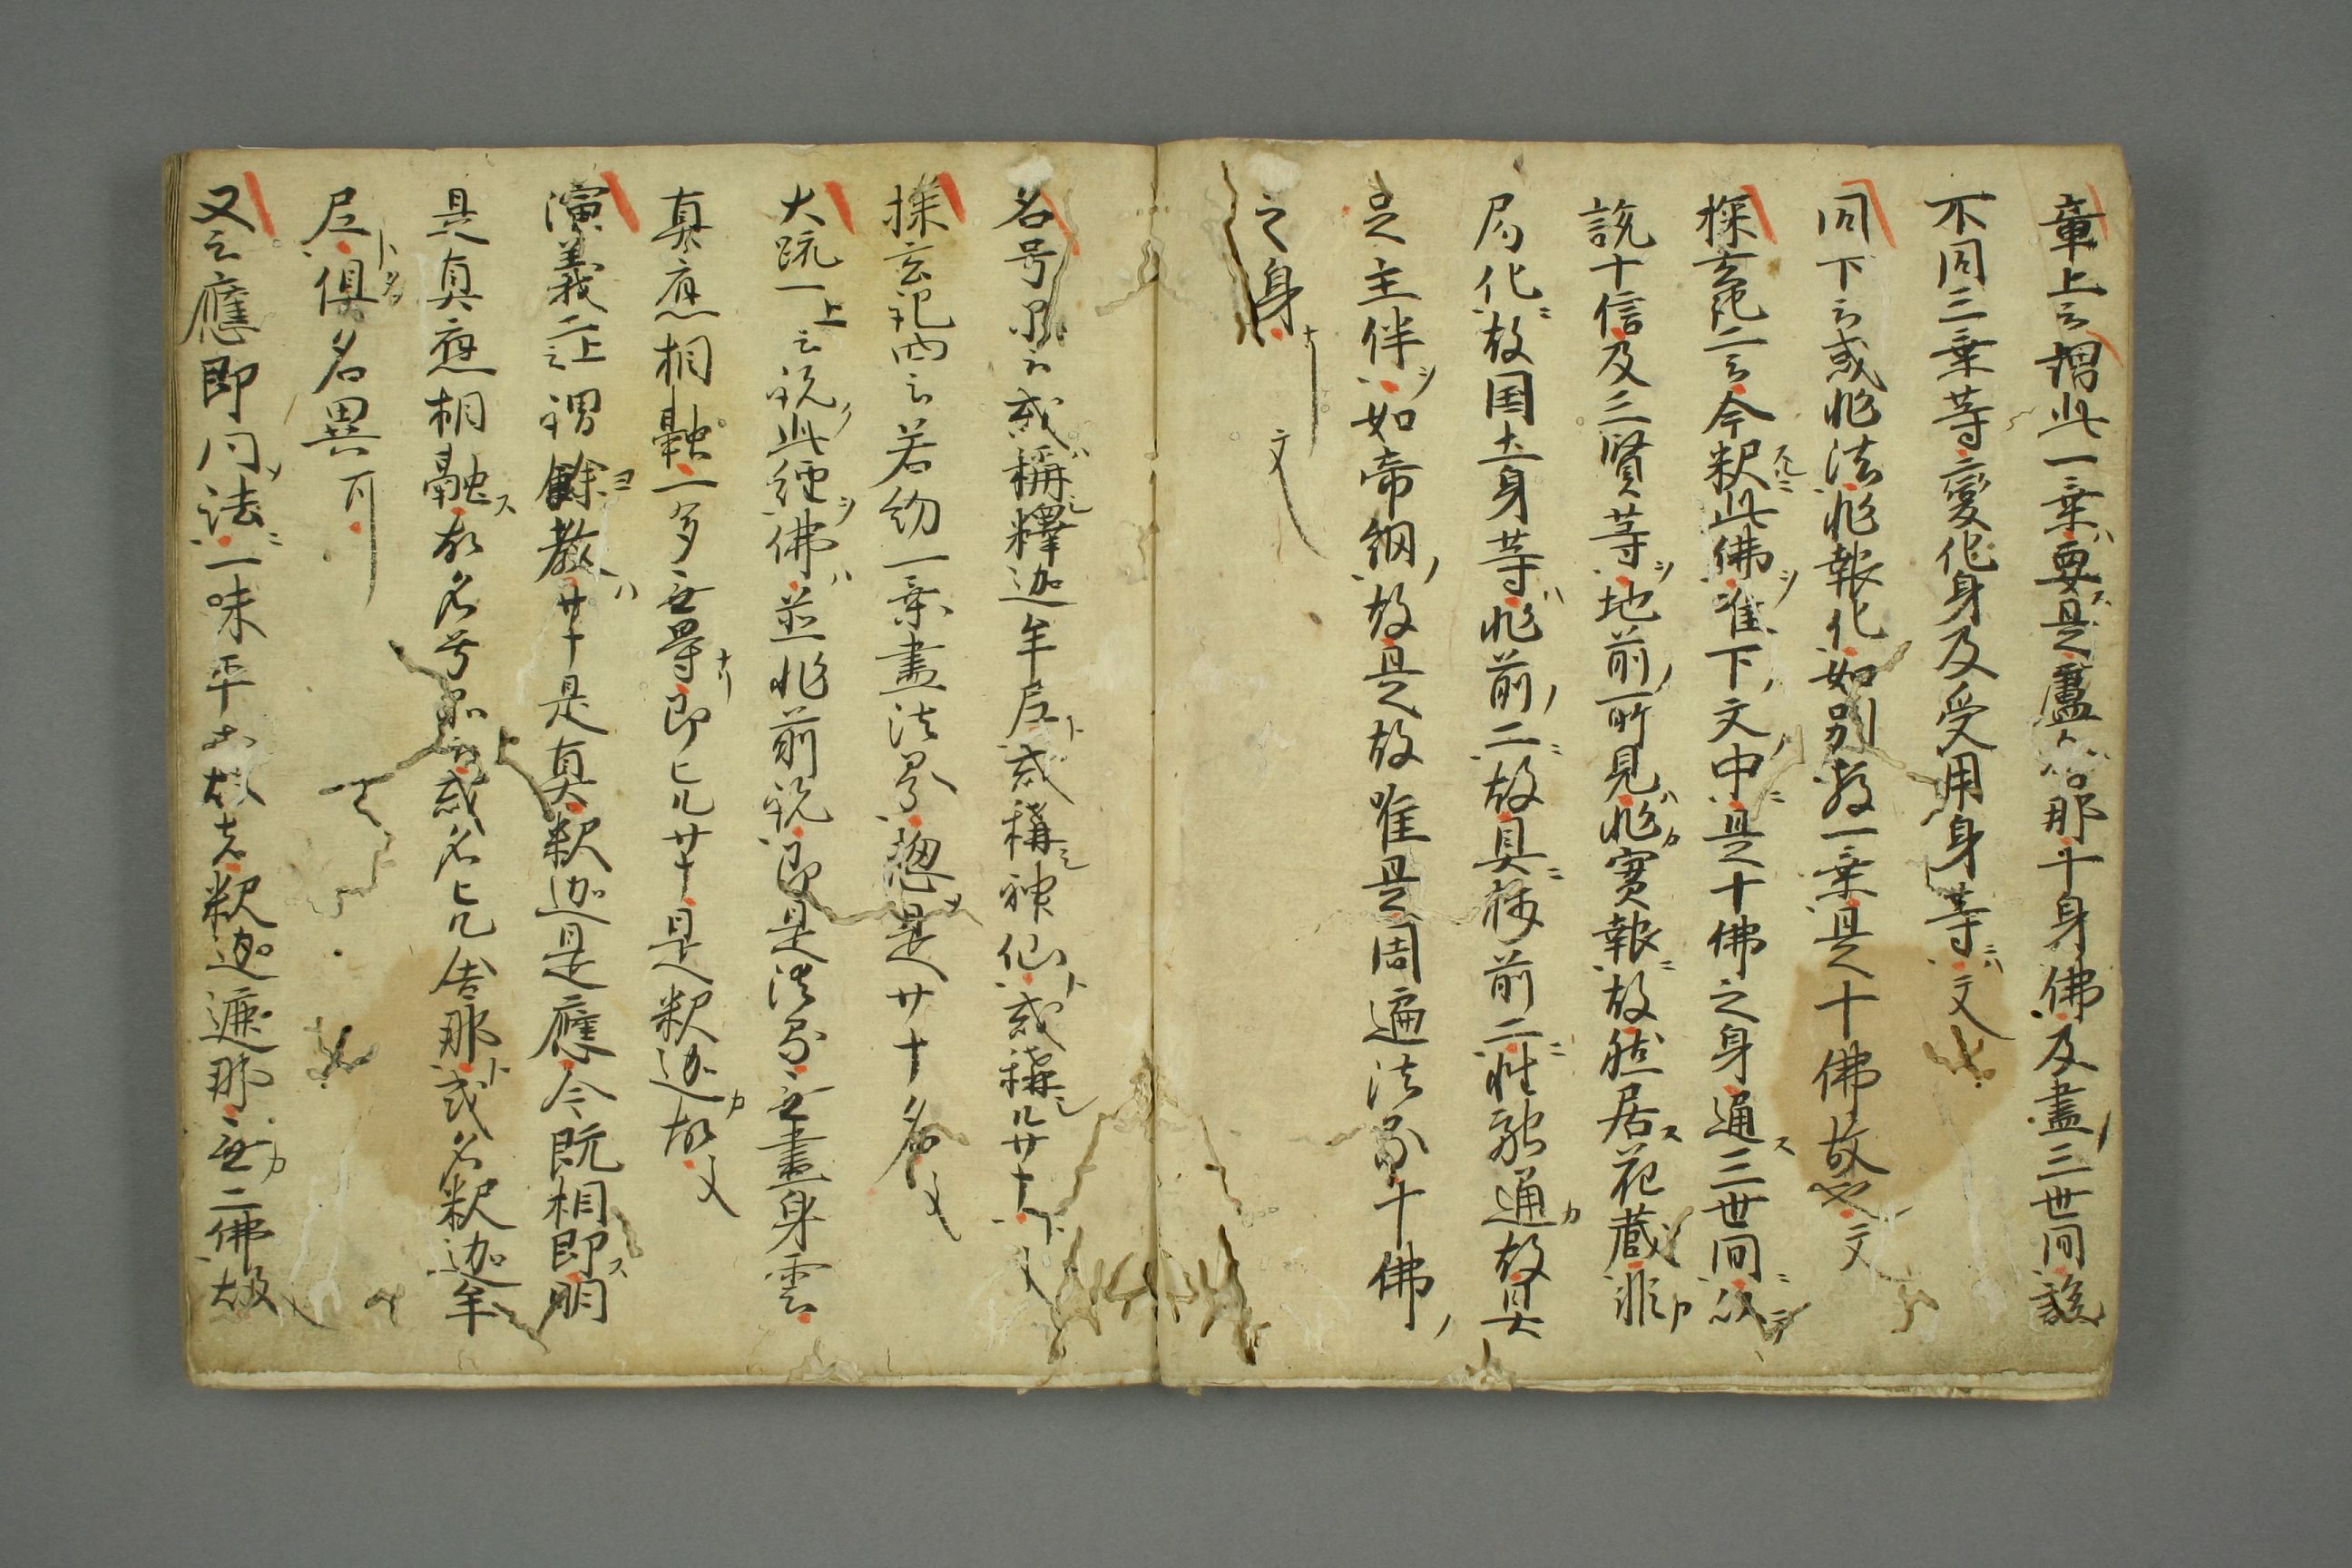 章上云謂此一乗要是盧舎那十身佛及盡三世間説
不同三乗等變化身及受用身等文
同下云或非法非報化如別教一乗是十佛故也文
探玄記二云今釈此佛准下文中是十佛之身通三世間以
説十信及三賢等地前所見非實報故然居花蔵非
局化故国土身等非前二故具摂前二性融通故具
足主伴如帝網故是故唯是周遍法界十佛
之身文
名号品云或稱釋迦牟尼或稱神仙或稱毘盧遮那等文
探玄記四云若約一乗盡法界惣是廿十名文
大疏一上云説此經佛並非前説即是法界无盡身雲
真應相融一多无导即ヒル廿十是釈迦故文
演義二上云謂餘教廿十是真釈迦是應今既相即明
是真應相融故名号品云或名ヒル舎那或名釈迦牟
尼俱名異可
又云應即同法一味平等故云釈迦遮那无二佛故